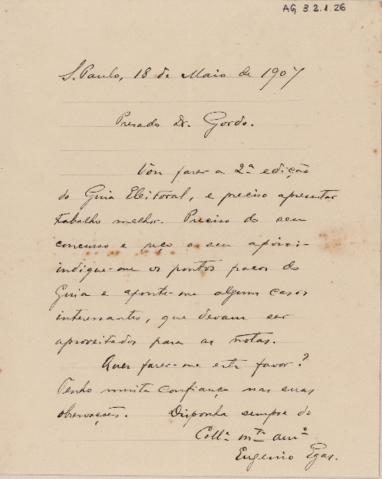 AG 3.2.1.26
S. Paulo, 18 de Maio de 1907
Presado Dr. Gordo.
Vou fazer a 2ª edição
do Guia Eleitoral, e preciso apresentar
trabalho melhor. Preciso do seu
concurso e peço o seu apoio:
indique-me os pontos fracos do
Guia e aponte-me alguns casos
interessantes, que devam ser
aproveitados para as notas.
Quer fazer-me este favor?
Tenho muita confiança nas suas
observações. Disponha sempre do
Collª mtº amº
Eugenio Egas.